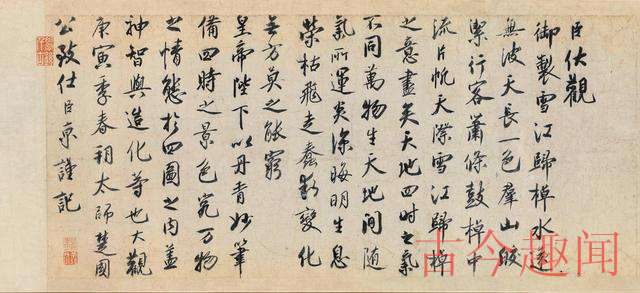 臣伏觀
御製雪江歸棹水遠
無波天長一色羣山皎
潔行客蕭條鼓棹中
流片帆天際雪江歸棹
之意盡矣天地四時之氣
不同萬物生天地間隨
氣所運炎涼晦明生息
榮枯飛走蠢動變化
無方莫之能窮
皇帝陛下以丹青妙筆
備四時之景色究萬物
之情態於四圖之內蓋
神智與造化等也大觀
庚寅季春朔太師楚國
公致仕臣京謹記
古今趣闻